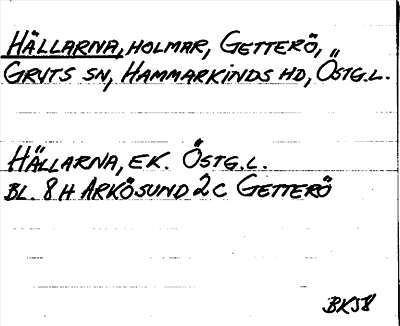 HÄLLARNA, HOLMAR, GETTERÖ,
GRYTS SN, HAMMARKINDS HD, ÖSTG.L.
HÄLLARNA, EK. ÖSTG.L.
BL. 8H ARKÖSUND 2C GETTERÖ
BK58